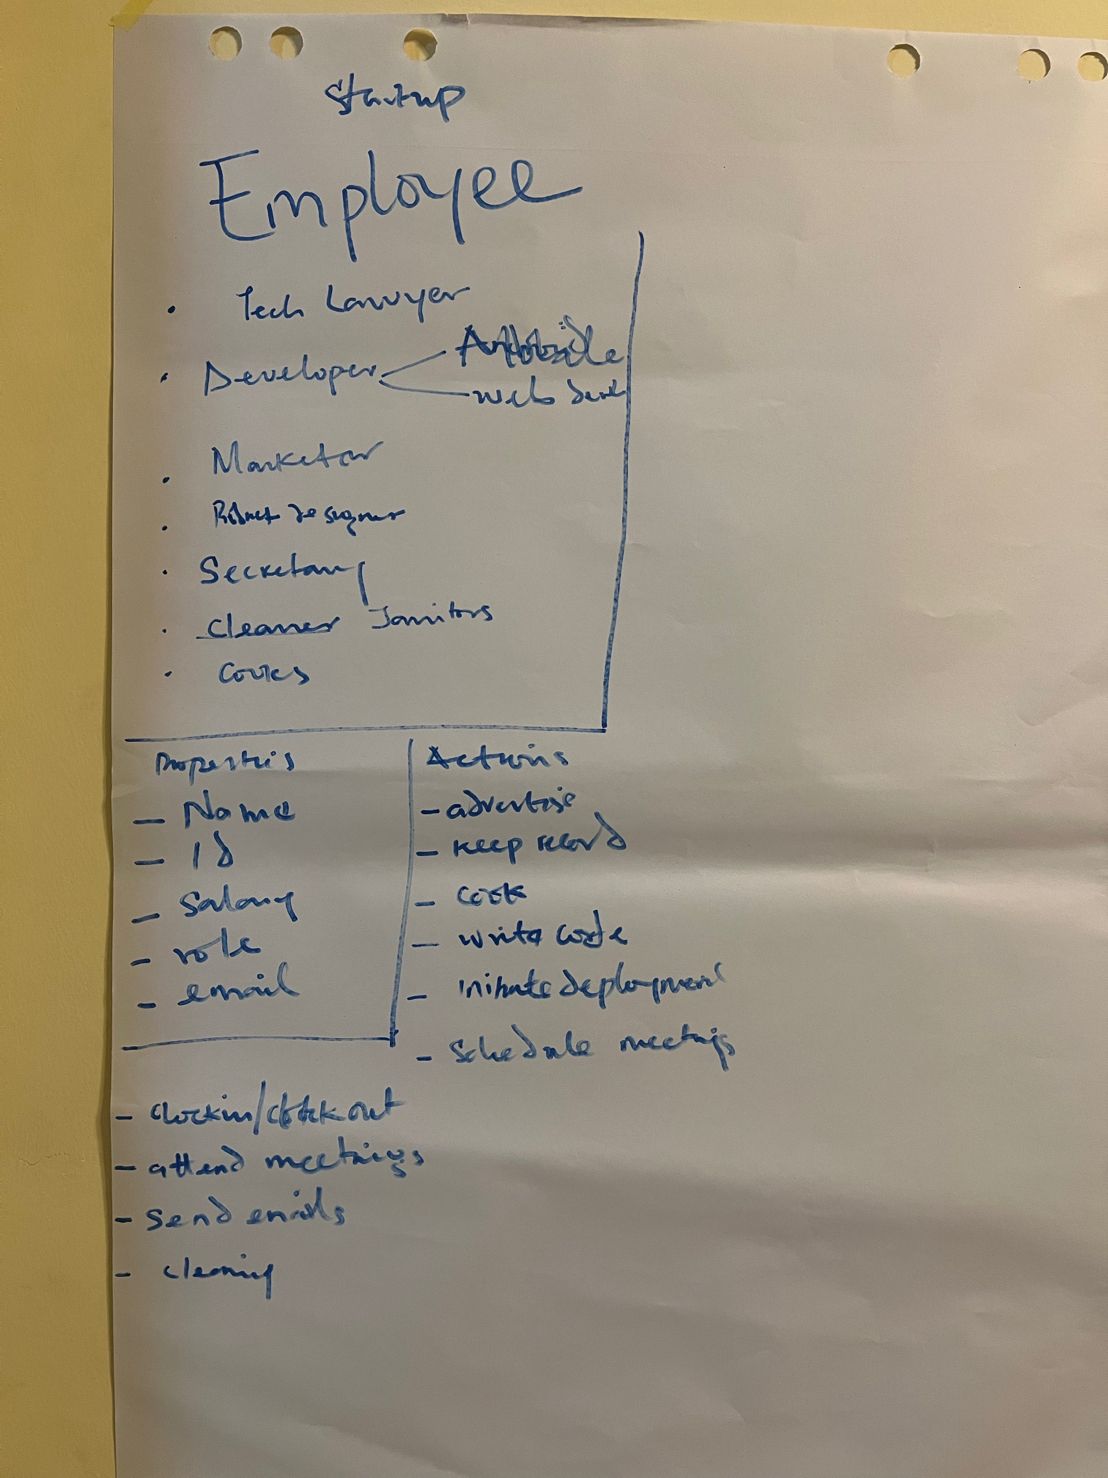 Startup
Employee
• Tech Lawyer
• Developer
Mobile
Web dev
• Marketer
• designer
• Secretary
• Cleaner Janitors
• Cooks
Properties
- Name
- Id
- Salary
- role
- email
Actions
- advertise
- keep record
- cook
- write code
- initiate deployment
- Schedule meetings
- clockin/clock out
- attend meetings
- Send emails
- cleaning